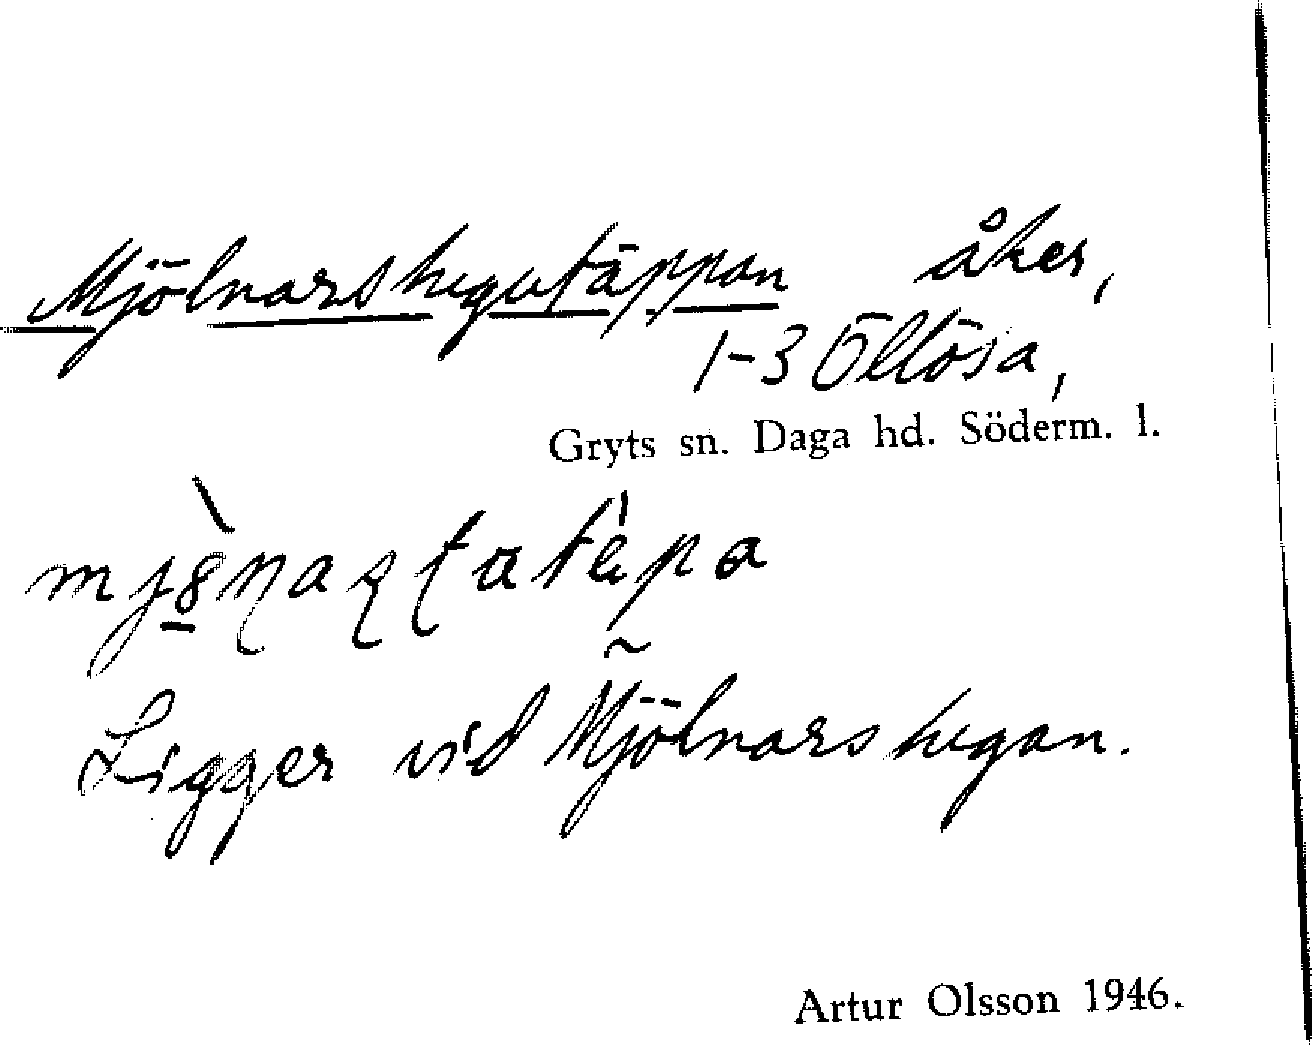 Mjölnarstugutäppan åker,
1-3 Öllösa,
Gryts sn. Daga hd. Söderm. l.
Ligger vid Mjölnarstugan.
Artur Olsson 1946.